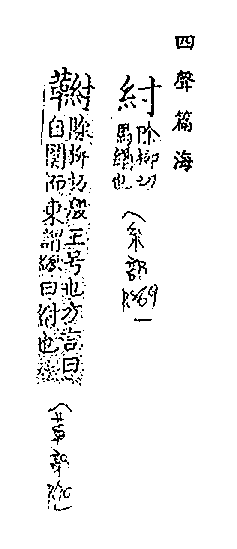 四聲篇海
紂 除柳切
馬緧也 (糸部
除柳切殷王号也方言曰
自關而東謂緧曰紂也
(革部